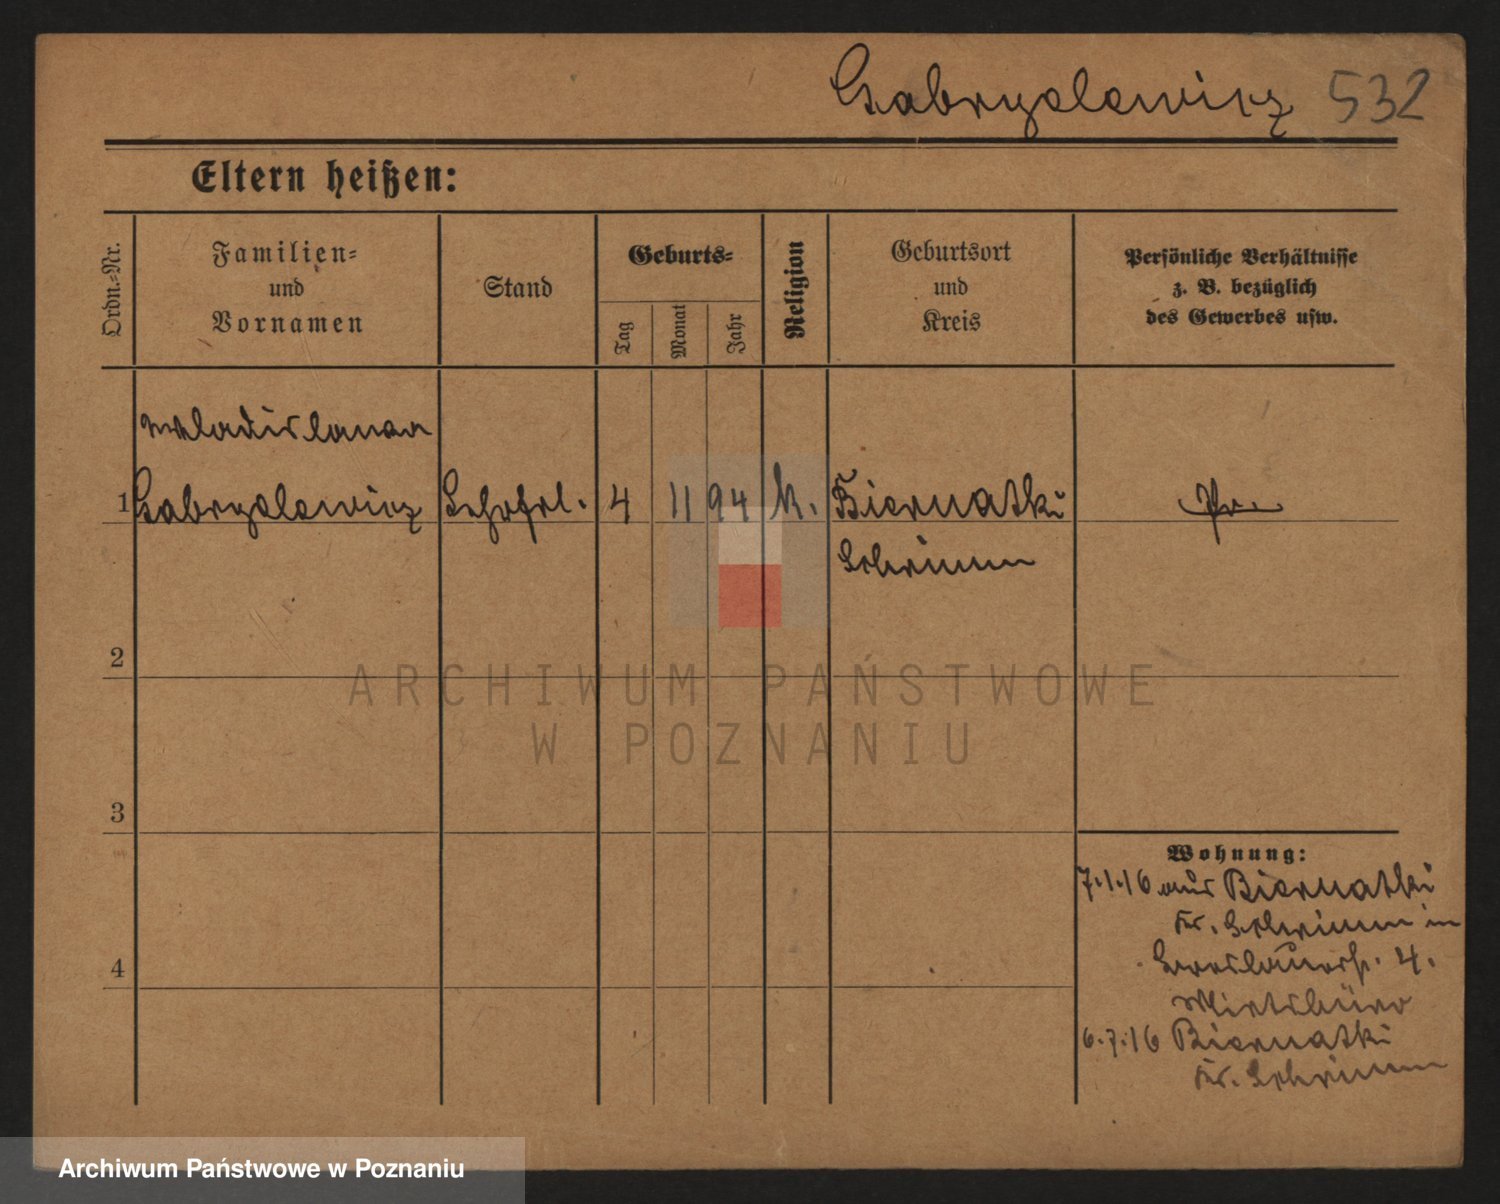 Gabryelewicz 532
Eltern heißen:
Ordn.-Nr.
Familien-
und
Vornamen
Stand
Geburts-
Tag
Monat
Jahr
Religion
Geburtsort
und
Kreis
Persönliche Verhältnisse
z. B. bezüglich
des Gewerbes usw.
Wladislawa
1 Gabryelewicz Lehrfrl. 4 11 94 k. Biernatki Pr.
Schrimm
2
ARCHIWUM PAŃSTWOWE
W POZNANIU
3
Wohnung:
7.1.16 aus Biernatki
Kr. Schrimm in
Breslauerstr. 4.
Mietsbüro
6.7.16 Biernatki
Kr. Schrimm
4
Archiwum Państwowe w Poznaniu